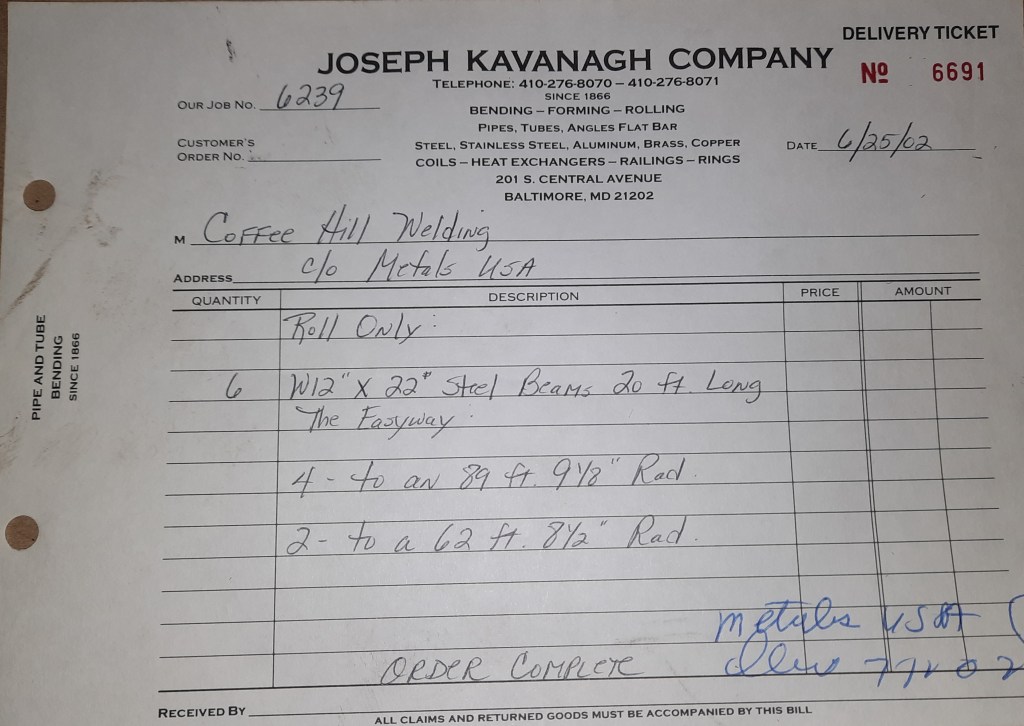 DELIVERY TICKET
JOSEPH KAVANAGH COMPANY
Nº 6691
TELEPHONE: 410-276-8070 – 410-276-8071
SINCE 1866
OUR JOB NO. 6239
BENDING – FORMING – ROLLING
PIPES, TUBES, ANGLES FLAT BAR
CUSTOMER'S
ORDER NO.
STEEL, STAINLESS STEEL, ALUMINUM, BRASS, COPPER
DATE 6/25/02
COILS – HEAT EXCHANGERS – RAILINGS – RINGS
201 S. CENTRAL AVENUE
BALTIMORE, MD 21202
M Coffee Hill Welding
ADDRESS c/o Metals USA
QUANTITY DESCRIPTION PRICE AMOUNT
Roll Only:
6 W12" X 22# Steel Beams 20 ft. Long
The Easyway:
4 - to an 89 ft. 9 1/8" Rad.
2 - to a 62 ft. 8 1/2" Rad.
Metals USA
ORDER COMPLETE
RECEIVED BY
ALL CLAIMS AND RETURNED GOODS MUST BE ACCOMPANIED BY THIS BILL
PIPE AND TUBE
BENDING
SINCE 1866